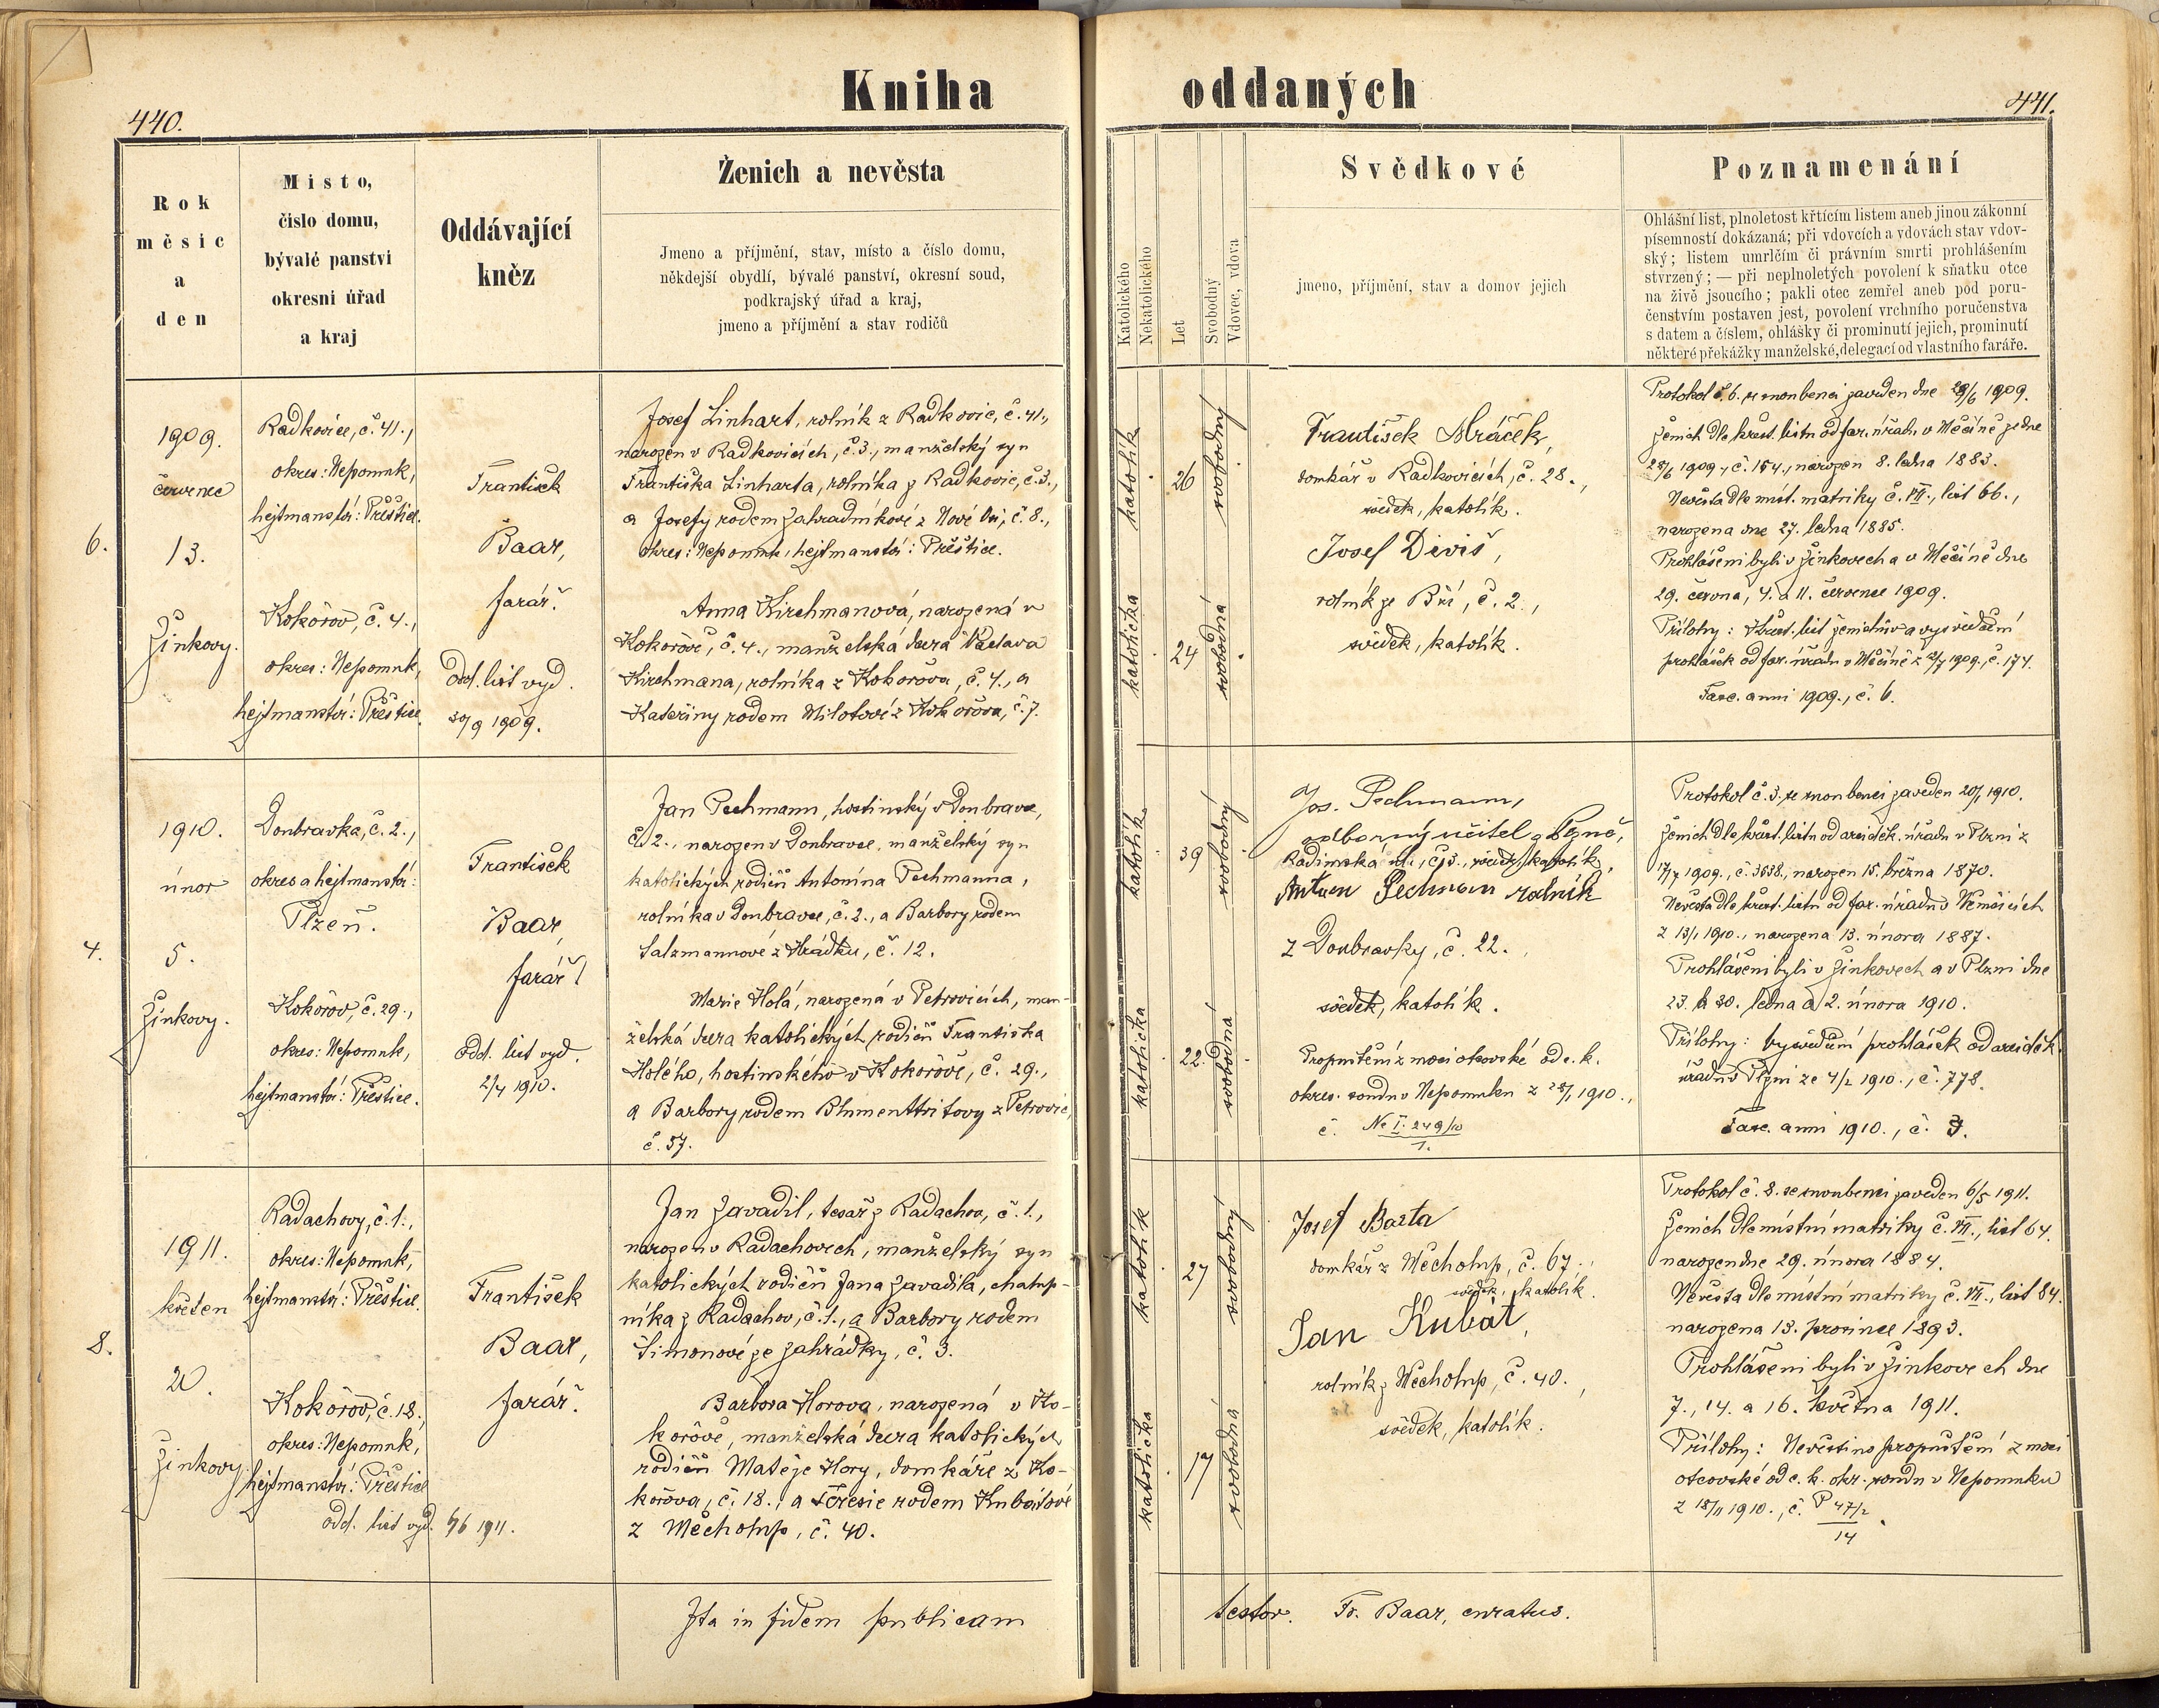 Kniha oddaných
440.
441.
Rok
měsíc
a
den
Místo,
číslo domu,
bývalé panství
okresní úřad
a kraj
Oddávající
kněz
Ženich a nevěsta
Jmeno a příjmění, stav, místo a číslo domu,
někdejší obydlí, bývalé panství, okresní soud,
podkrajský úřad a kraj,
jmeno a příjmění a stav rodičů
Katolického
Nekatolického
Let
Svobodný
Vdovec, vdova
Svědkové
jmeno, příjmění, stav a domov jejich
Poznamenání
Ohlášní list, plnoletost křtícím listem aneb jinou zákonní
písemností dokázaná; při vdovcích a vdovách stav vdov-
ský; listem umrlčím či právním smrti prohlášením
stvrzený; — při neplnoletých povolení k sňatku otce
na živě jsoucího; pakli otec zemřel aneb pod poru-
čenstvím postaven jest, povolení vrchního poručenstva
s datem a číslem, ohlášky či prominutí jejich, prominutí
některé překážky manželské, delegací od vlastního faráře.
6.
1909.
červenec
13.
Žinkovy.
Radkovice, č. 41.,
okres: Nepomuk,
hejtmanství: Přeštice.
Kokořov, č. 4.,
okres: Nepomuk,
hejtmanství: Přeštice.
František
Baar,
farář.
Odd. list vyd.
30/9 1909.
Josef Linhart, rolník z Radkovic, č. 41.,
narozen v Radkovicích, č. 3., manželský syn
Františka Linharta, rolníka z Radkovic, č. 3.,
a Josefy rodem Zahradníkové z Nové Vsi, č. 8.,
okres: Nepomuk, hejtmanství: Přeštice.
Anna Kirchmanová, narozená v
Kokořově, č. 4., manželská dcera Václava
Kirchmana, rolníka z Kokořova, č. 4., a
Kateřiny rodem Milotové z Kokořova, č. 7.
katolík
26
svobodný
katolička
24
svobodná
František Mráček,
domkář v Radkovicích, č. 28.,
svědek, katolík.
Josef Diviš,
rolník ze Bží, č. 2.,
svědek, katolík.
Protokol č. 6. se snoubenci zaveden dne 29/6 1909.
Ženich dle křest. listu od far. úřadu v Měčíně ze dne
28/6 1909, č. 154., narozen 8. ledna 1883.
Nevěsta dle míst. matriky č. VII., list 66.,
narozena dne 27. ledna 1885.
Prohlášeni byli v Žinkovech a v Měčíně dne
29. června, 4. a 11. července 1909.
Přílohy: Křest. list ženichův a vysvědčení
prohlášek od far. úřadu v Měčíně z 12/7 1909., č. 174.
Fasc. anni 1909., č. 6.
4.
1910.
únor
5.
Žinkovy.
Doubravka, č. 2.,
okres a hejtmanství:
Plzeň.
Kokořov, č. 29.,
okres: Nepomuk,
hejtmanství: Přeštice.
František
Baar,
farář
odd. list vyd.
2/4 1910.
Jan Pechmann, hostinský v Doubravce,
č. 2., narozen v Doubravce, manželský syn
katolických rodičů Antonína Pechmanna,
rolníka v Doubravce, č. 2., a Barbory rodem
Salzmannové z Hrádku, č. 12.
Marie Holá, narozená v Petrovicích, man-
želská dcera katolických rodičů Františka
Holého, hostinského v Kokořově, č. 29.,
a Barbory rodem Blumenttritovy z Petrovic,
č. 57.
katolík
39
svobodný
katolička
22.
svobodná
Jos. Pechmann,
odborný učitel v Plzni,
Radimská ul., č. 3., svědek, katolík,
Antonn Pechman rolník
z Doubravky, č. 22.
svědek, katolík.
Propuštění z moci otcovské od c. k.
okres. soudu v Nepomuku z 28/1 1910.,
č. Nc I. 249/10
1.
Protokol č. 3. se snoubenci zaveden 20/1 1910.
Ženich dle křest. listu od arciděk. úřadu v Plzni z
17/7 1909., č. 3638., narozen 15. března 1870.
Nevěsta dle křest. listu od far. úřadu v Němčicích
z 13/1 1910., narozena 13. února 1887.
Prohlášeni byli v Žinkovech a v Plzni dne
23. a 30. ledna a 2. února 1910.
Přílohy: vysvědčení prohlášek od arciděk.
úřadu v Plzni ze 4/2 1910., č. 778.
Fasc. anni 1910., č. 3.
8.
1911.
květen
20.
Žinkovy.
Radachovy, č. 1.,
okres: Nepomuk,
hejtmanství: Přeštice.
Kokořov, č. 18.,
okres: Nepomuk,
hejtmanství: Přeštice
odd. list vyd. 4/6 1911.
František
Baar,
farář.
Jan Zavadil, tesař z Radachov, č. 1.,
narozen v Radachovech, manželský syn
katolických rodičů Jana Zavadila, chalup-
níka z Radachov, č. 1., a Barbory rodem
Šimonové ze Zahrádky, č. 3.
Barbora Horova, narozená v Ko-
kořově, manželská dcera katolických
rodičů Matěje Hory, domkáře z Ko-
kořova, č. 18., a Terezie rodem Kubátové
z Měcholup, č. 40.
katolík
27
svobodný
katolička
17
svobodná
Josef Bárta
domkář z Měcholup, č. 67.
svědek, katolík.
Jan Kubát,
rolník z Měcholup, č. 40.,
svědek, katolík.
Protokol č. 8. se snoubenci zaveden 6/5 1911.
Ženich dle místní matriky č. VII., list 64.
narozen dne 29. února 1884.
Nevěsta dle místní matriky č. VII., list 84.
narozena 13. prosince 1893.
Prohlášeni byli v Žinkovech dne
7., 14. a 16. května 1911.
Přílohy: Nevěstino propuštění z moci
otcovské od c. k. okr. soudu v Nepomuku
z 18/11 1910., č. P 47/2
14
Ita in fidem publicam testor. Fr. Baar, curatus.